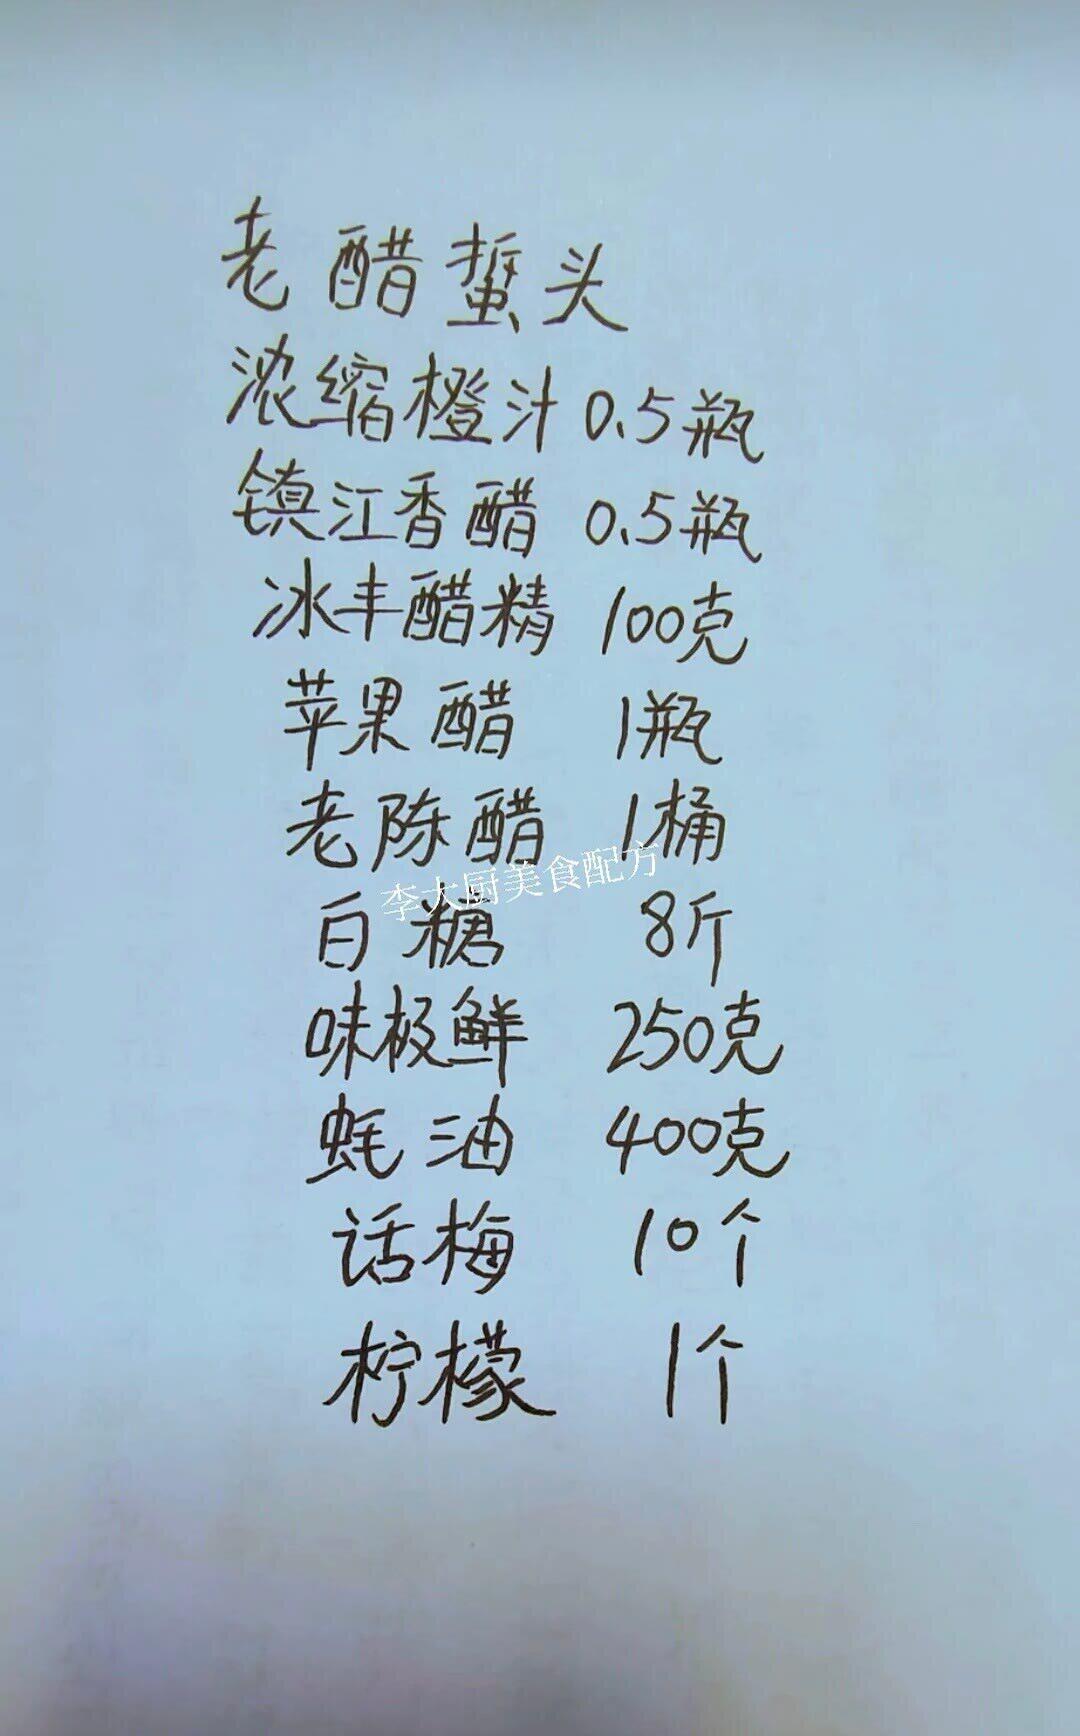 老醋蜇头
浓缩橙汁 0.5瓶
镇江香醋 0.5瓶
冰丰醋精 100克
苹果醋 1瓶
老陈醋 1桶
李大厨美食配方
白糖 8斤
味极鲜 250克
蚝油 400克
话梅 10个
柠檬 1个